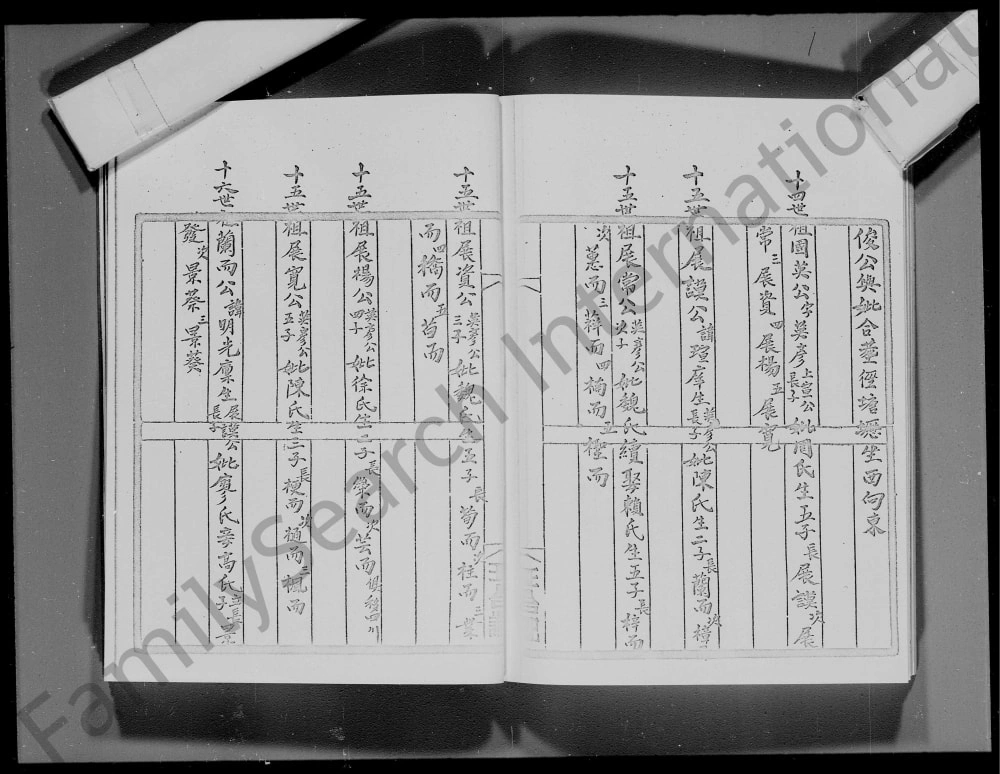 俊公與妣合葬徑塘壢坐西向東
十四世祖國英公字英彥上宣公長子妣周氏生五子長展謨次展
常三展資四展楊五展寬
十五世祖展謨公諱瑄庠生英彥公長子妣陳氏生二子長蘭而次樟
十五世祖展常公英彥公次子妣魏氏續娶賴氏生五子長梓而
次蕙而三梓而四楠而五樫而
十五世祖展資公英彥公三子妣魏氏生五子長荀而次桂而三
而四橋而五苟而
十五世祖展楊公英彥公四子妣徐氏生二子長榮而次芸而俱移四川
十五世祖展寬公英彥公五子妣陳氏生三子長梗而次植而三楓而
十六世祖蘭而公諱明光廩生展謨公長子妣廖氏妾高氏三子長景
發次景蔡三景葵
FamilySearch International